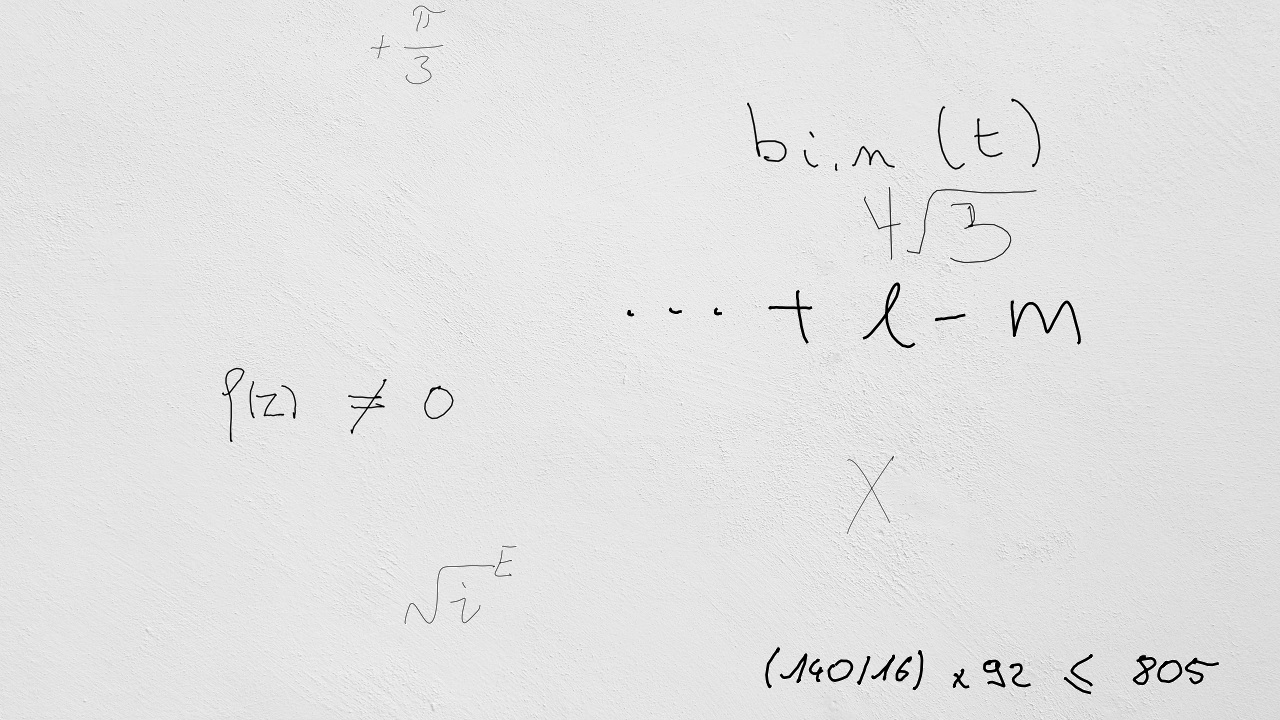 + π/3
bi.n (t)
4√3
... + l - m
f(z) ≠ 0
X
√i^E
(140/16) x 92 ≤ 805